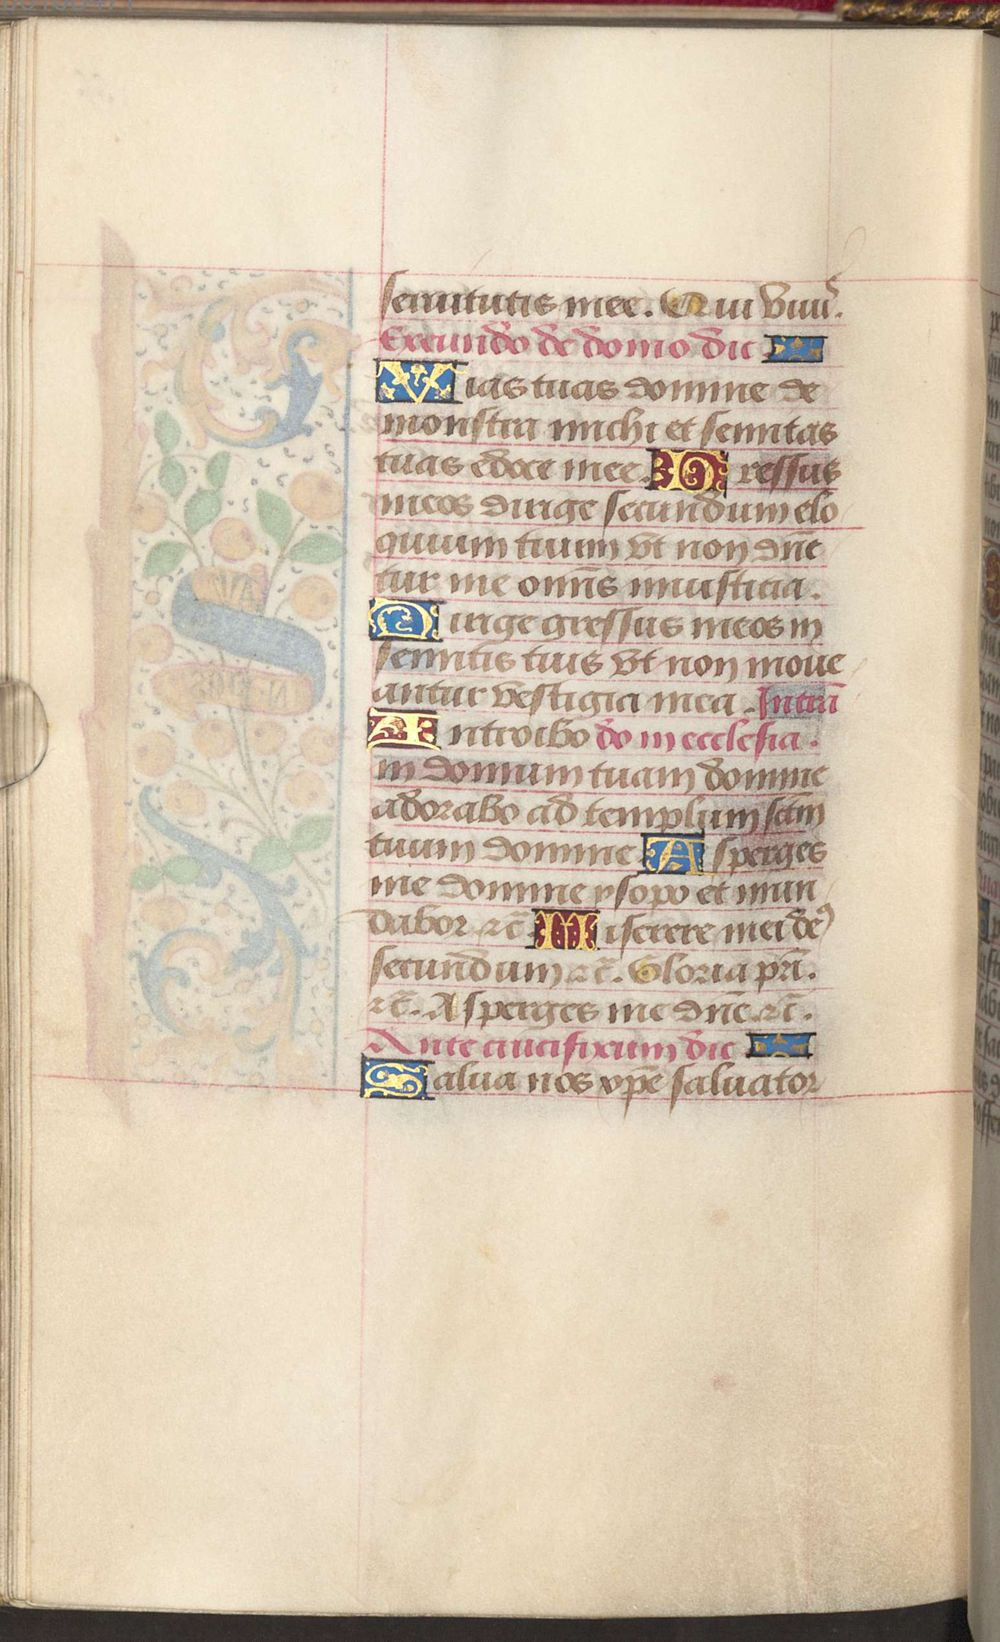 seruitutis mee. Qui viuis.
Exeundo de domo dic
Vias tuas domine de
monstra michi et semitas
tuas edoce mee. Gressus
meos dirige secundum elo
quium tuum vt non dn̄e
tur me om̄s iniusticia.
Dirige gressus meos in
semitis tuis vt non moue
antur vestigia mea. Intrā
Introibo do in ecclesia.
in domum tuam domine
adorabo ad templum sc̄m
tuum domine Asperges
me domine ysopo et mun
dabor ⁊c̄. Miserere mei deꝰ
secundum ⁊c̄. Gloria pr̄i.
⁊c̄. Asperges me dn̄e ⁊c̄.
Ante crucifixum dic
Salua nos xp̄e saluator